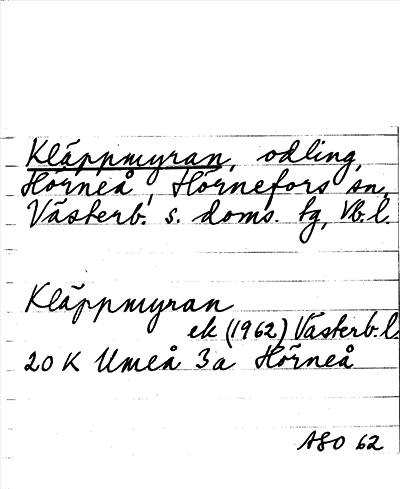 Kläppmyran, odling,
Hörneå, Hörnefors sn,
Västerb. s. doms. tg, Vb.l.
Kläppmyran
ek (1962) Västerb.l.
20 K Umeå 3a Hörneå
ASO 62